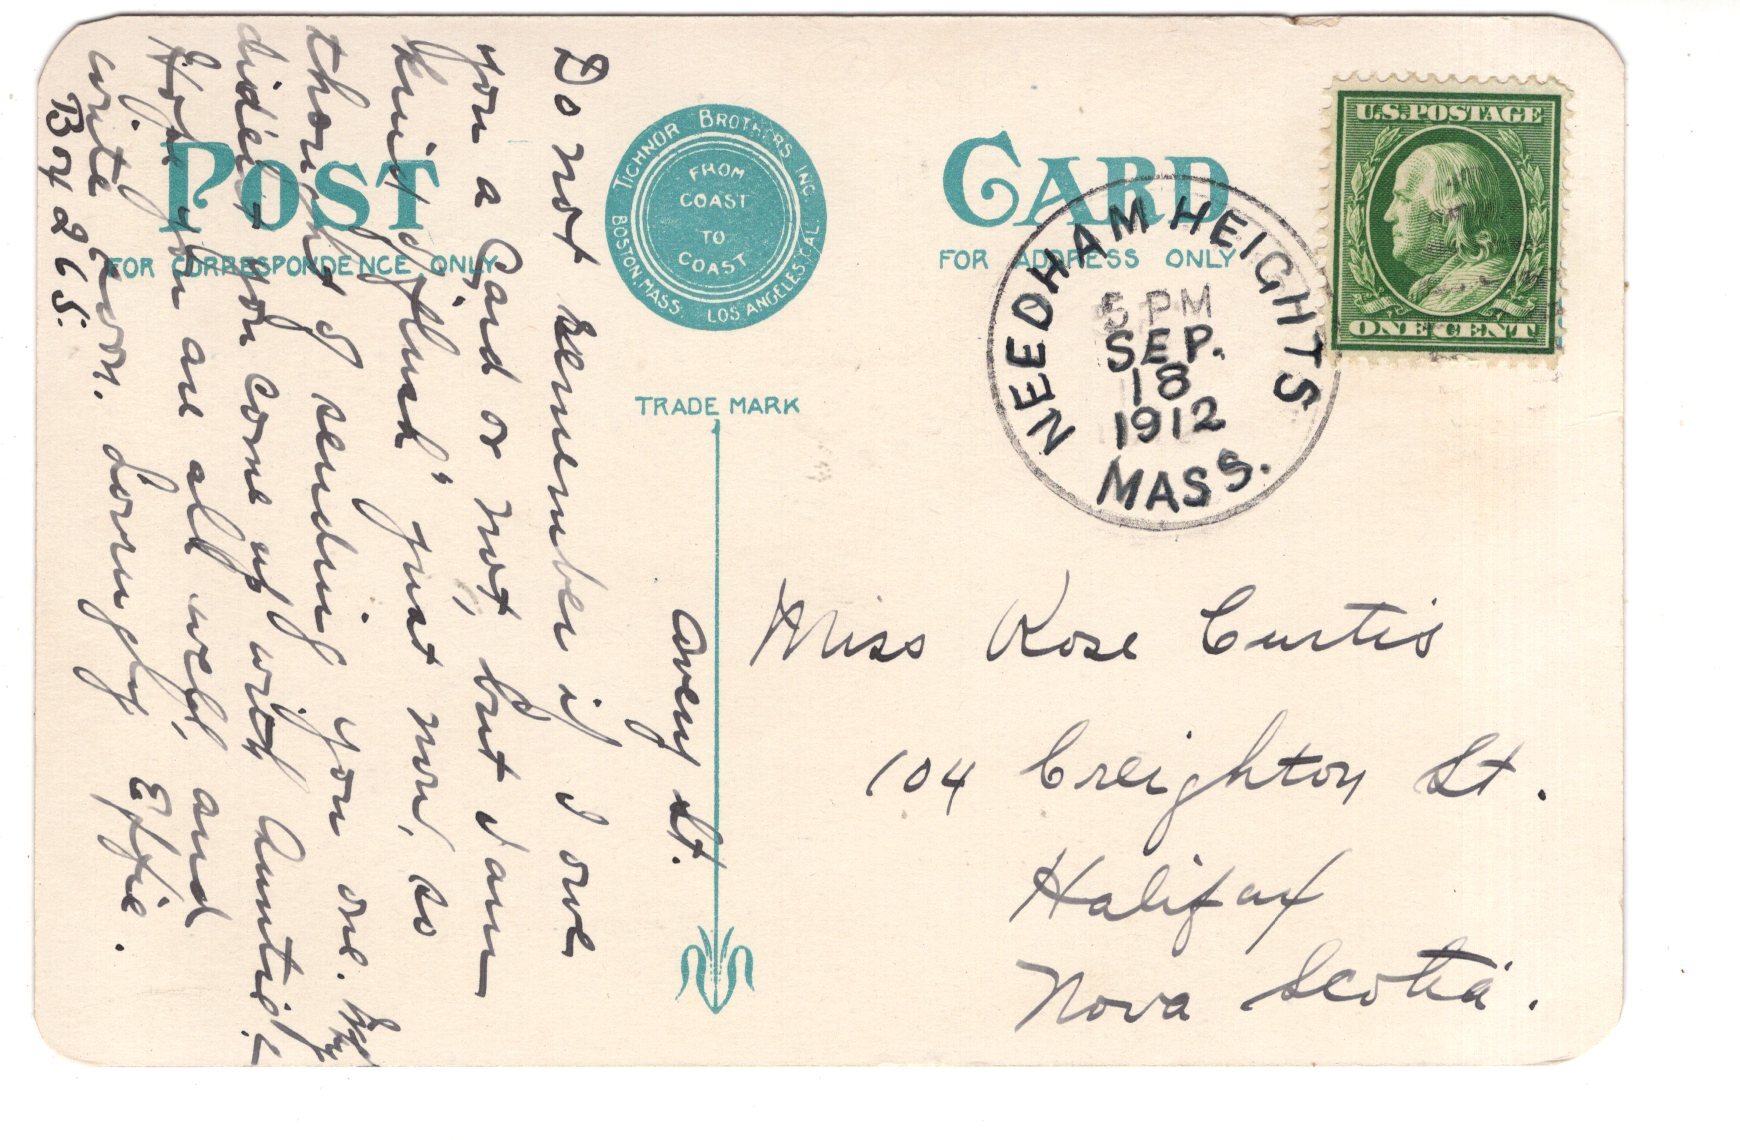 POST CARD
FOR CORRESPONDENCE ONLY
FOR ADDRESS ONLY
TICHNOR BROTHERS INC.
BOSTON, MASS. LOS ANGELES, CAL.
FROM
COAST
TO
COAST
TRADE MARK
U.S. POSTAGE
ONE CENT
NEEDHAM HEIGHTS
5 PM
SEP.
18
1912
MASS.
Avery St.
Do not remember if I owe
you a Card or not, but I am
kind of "flush" just now, so
thought I sending you one. Why
didn't you come up with Auntie?
Hope you are all well, and
write soon. Lovingly Effie.
Box 265.
Miss Rose Curtis
104 Creighton St.
Halifax
Nova Scotia.